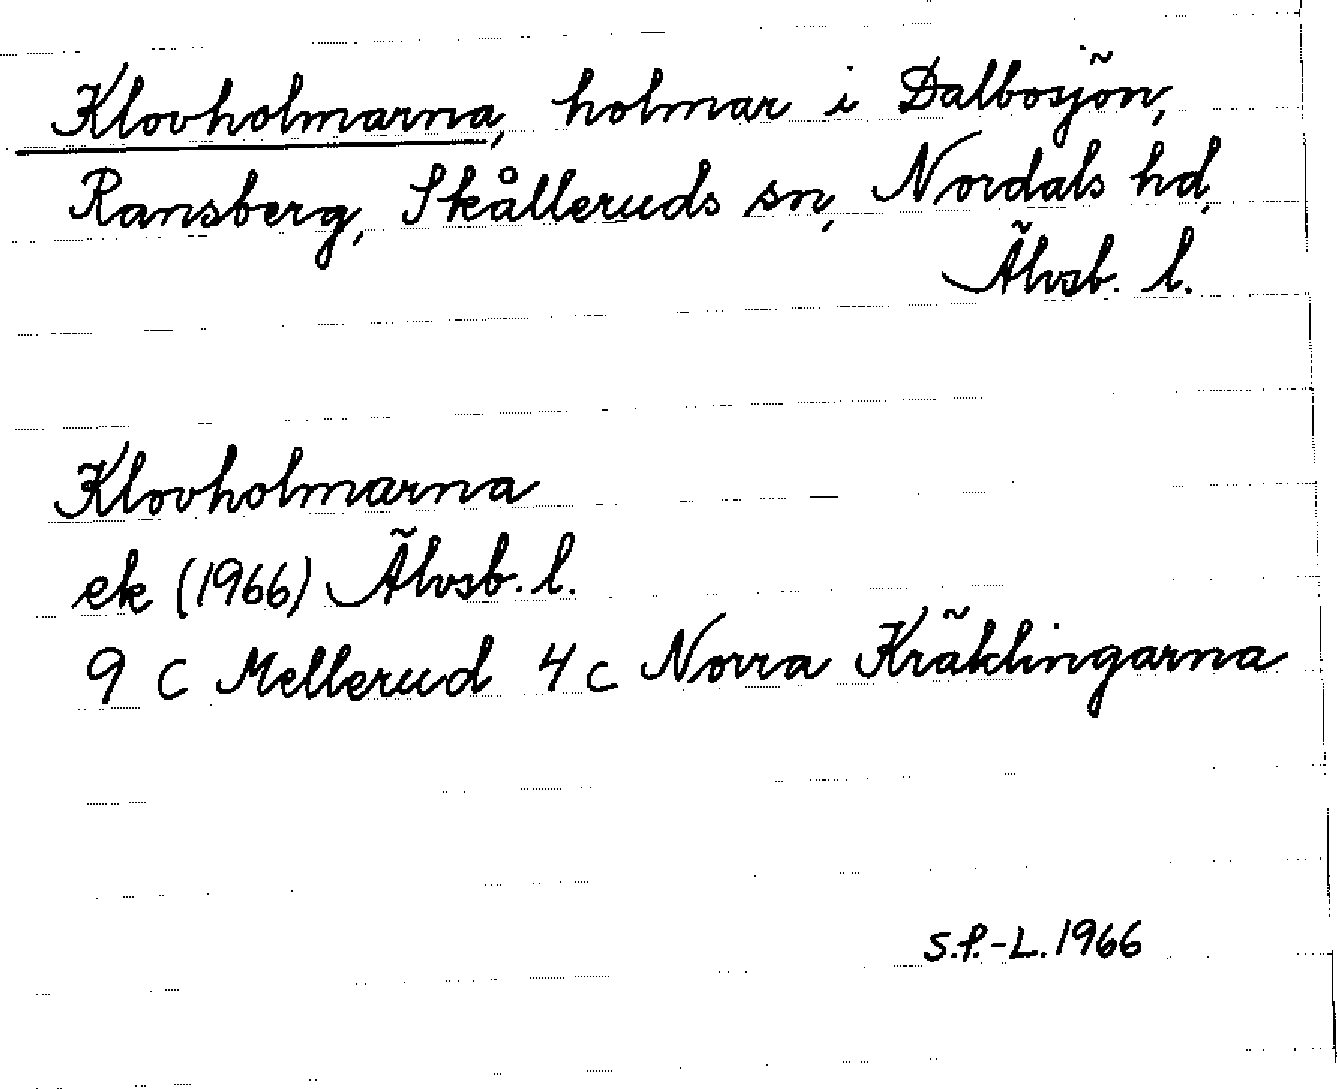 Klovholmarna, holmar i Dalbosjön,
Ransberg, Skålleruds sn, Nordals hd,
Älvsb. l.
Klovholmarna
ek (1966) Älvsb. l.
9 C Mellerud 4 c Norra Kräklingarna
S.P.-L. 1966